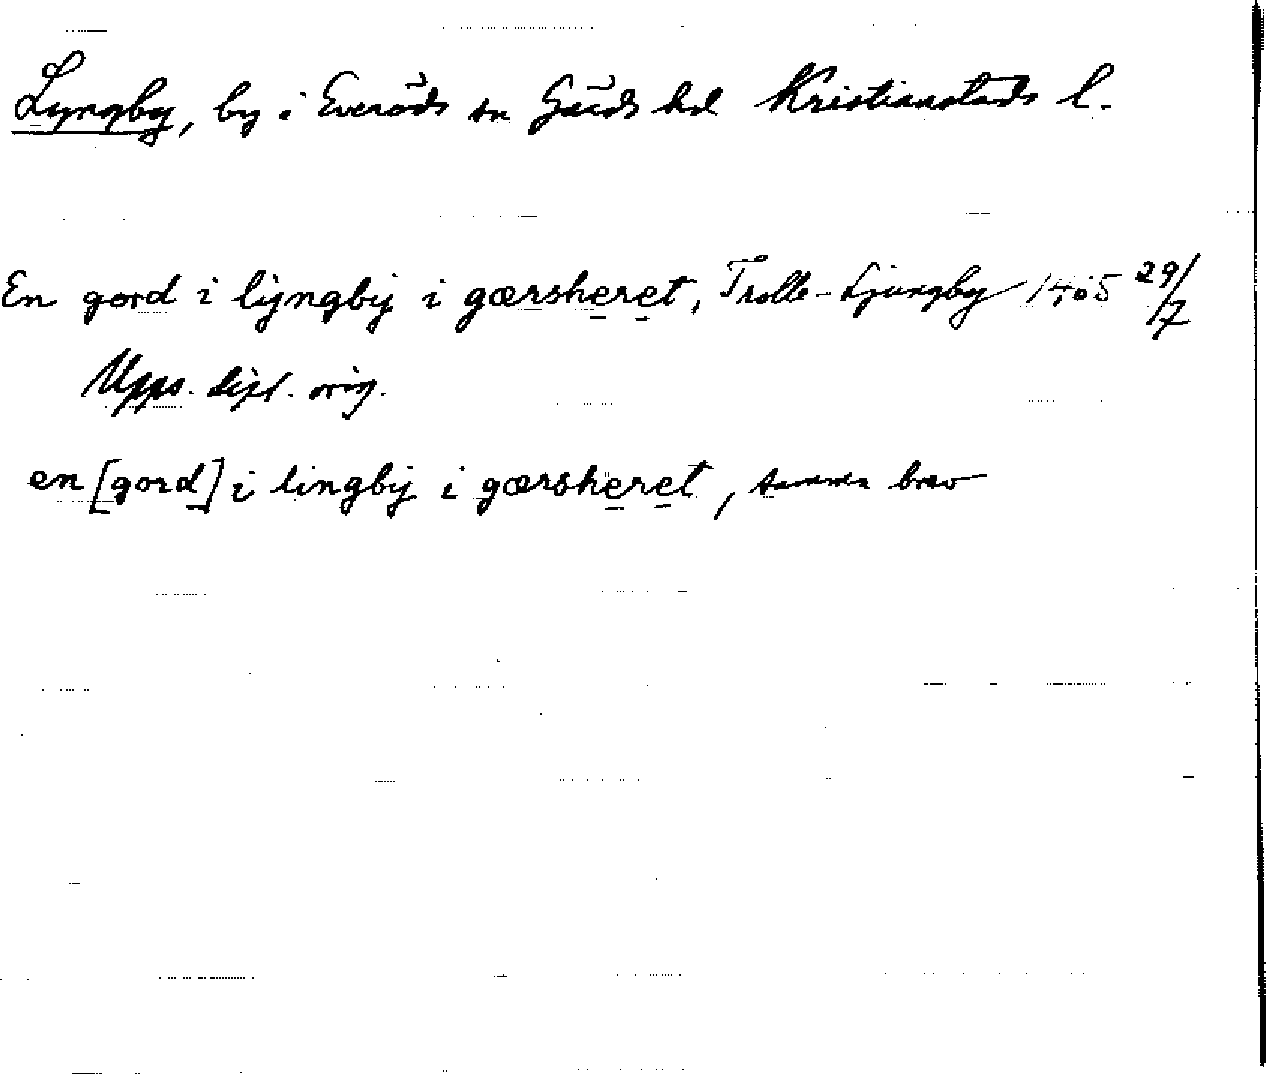 Lyngby, by i Everöds sn Gärds hd Kristianstads l.
En gord i lÿngbÿ i gærsheret, Trolle-Ljungby 1405 29/7
Upps. dipl. orig.
en [gord] i lingbÿ i gærsheret, samma brev